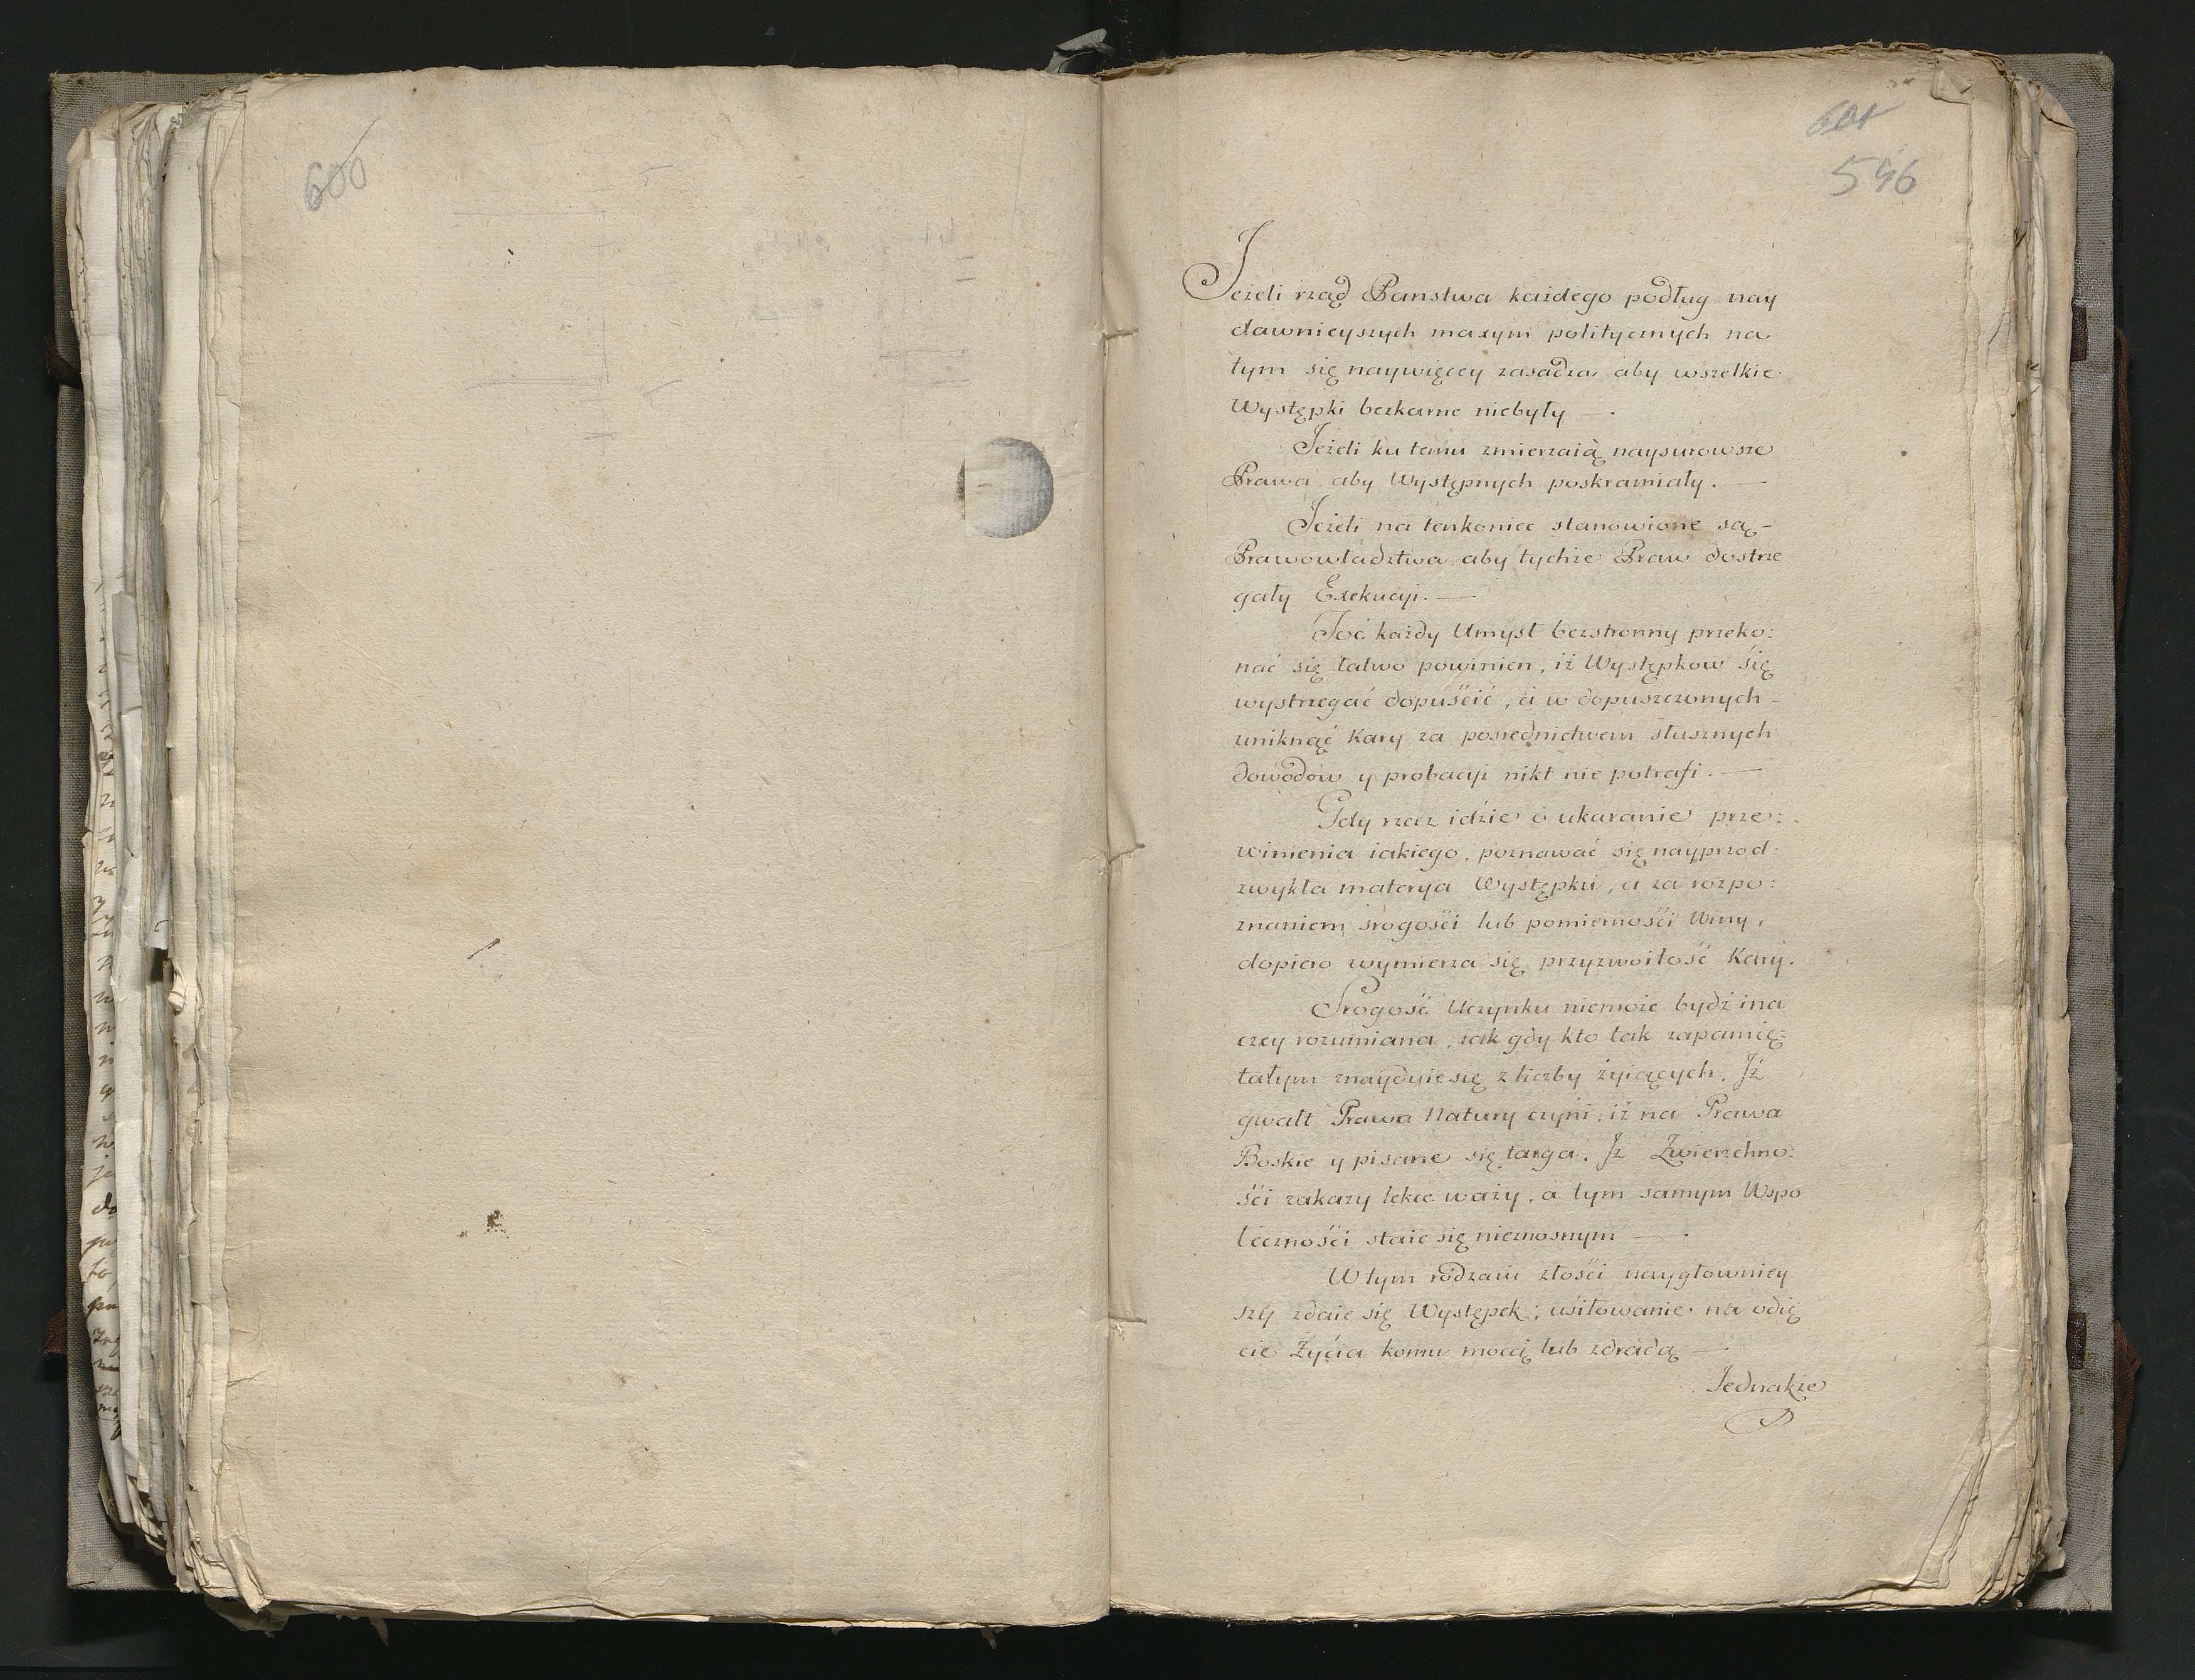 600
601
596
Jeżeli rząd Panstwa każdego podług nay
dawnieyszych maxym politycznych na
tym się naywięcey zasadza aby wszelkie
Występki bezkarne niebyły —.
Jeżeli ku temu zmierzaią naysurowsze
Prawa aby Występnych poskramiały. —
Jeżeli na tenkoniec stanowione są –
Prawowładztwa aby tychże Praw dostrze
gały Exekucyi. —
Toć każdy Umysł bezstronny przeko:
nać się łatwo powinien, iż Występkow się
wystrzegać dopuśćić, a w dopuszczonych –
uniknąć Kary za posrednictwem słusznych
dowodow y probacyi nikt nie potrafi. —
Gdy rzecz idzie o ukaranie prze:
winienia iakiego, poznawać się nayprzod
zwykła materya Występku, a za rozpo:
znaniem srogośći lub pomiernośći Winy,
dopiero wymierza się przyzwoitość Kary.
Srogość Uczynku niemoże bydź ina
czey rozumiana, iak gdy kto tak zapamię:
tałym znayduie się z liczby żyiących, Jż
gwałt Prawa Natury czyni, iż na Prawa
Boskie y pisane się targa, Jż Zwierzchno:
śći zakazy lekce waży, a tym samym Wspo
łecznośći staie się nieznosnym —.
W tym rodzaiu złośći naygłowniey
szy zdaie się Występek; usiłowanie na odię
cie Żyćia komu mocą lub zdradą —
Jednakże